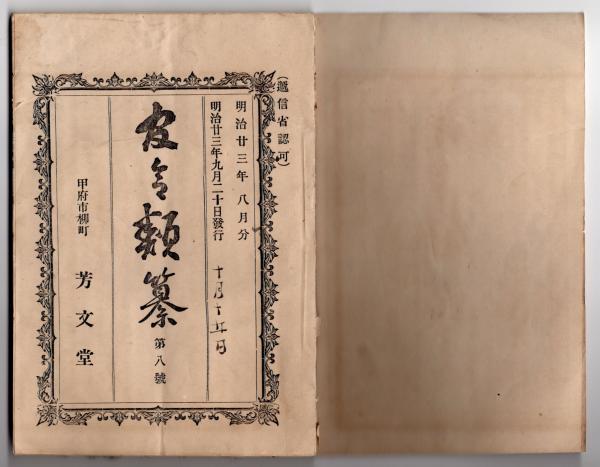 (遞信省認可)
明治廿三年八月分
明治廿三年九月二十日發行
十月十五日
令類纂
第八號
甲府市柳町
芳文堂